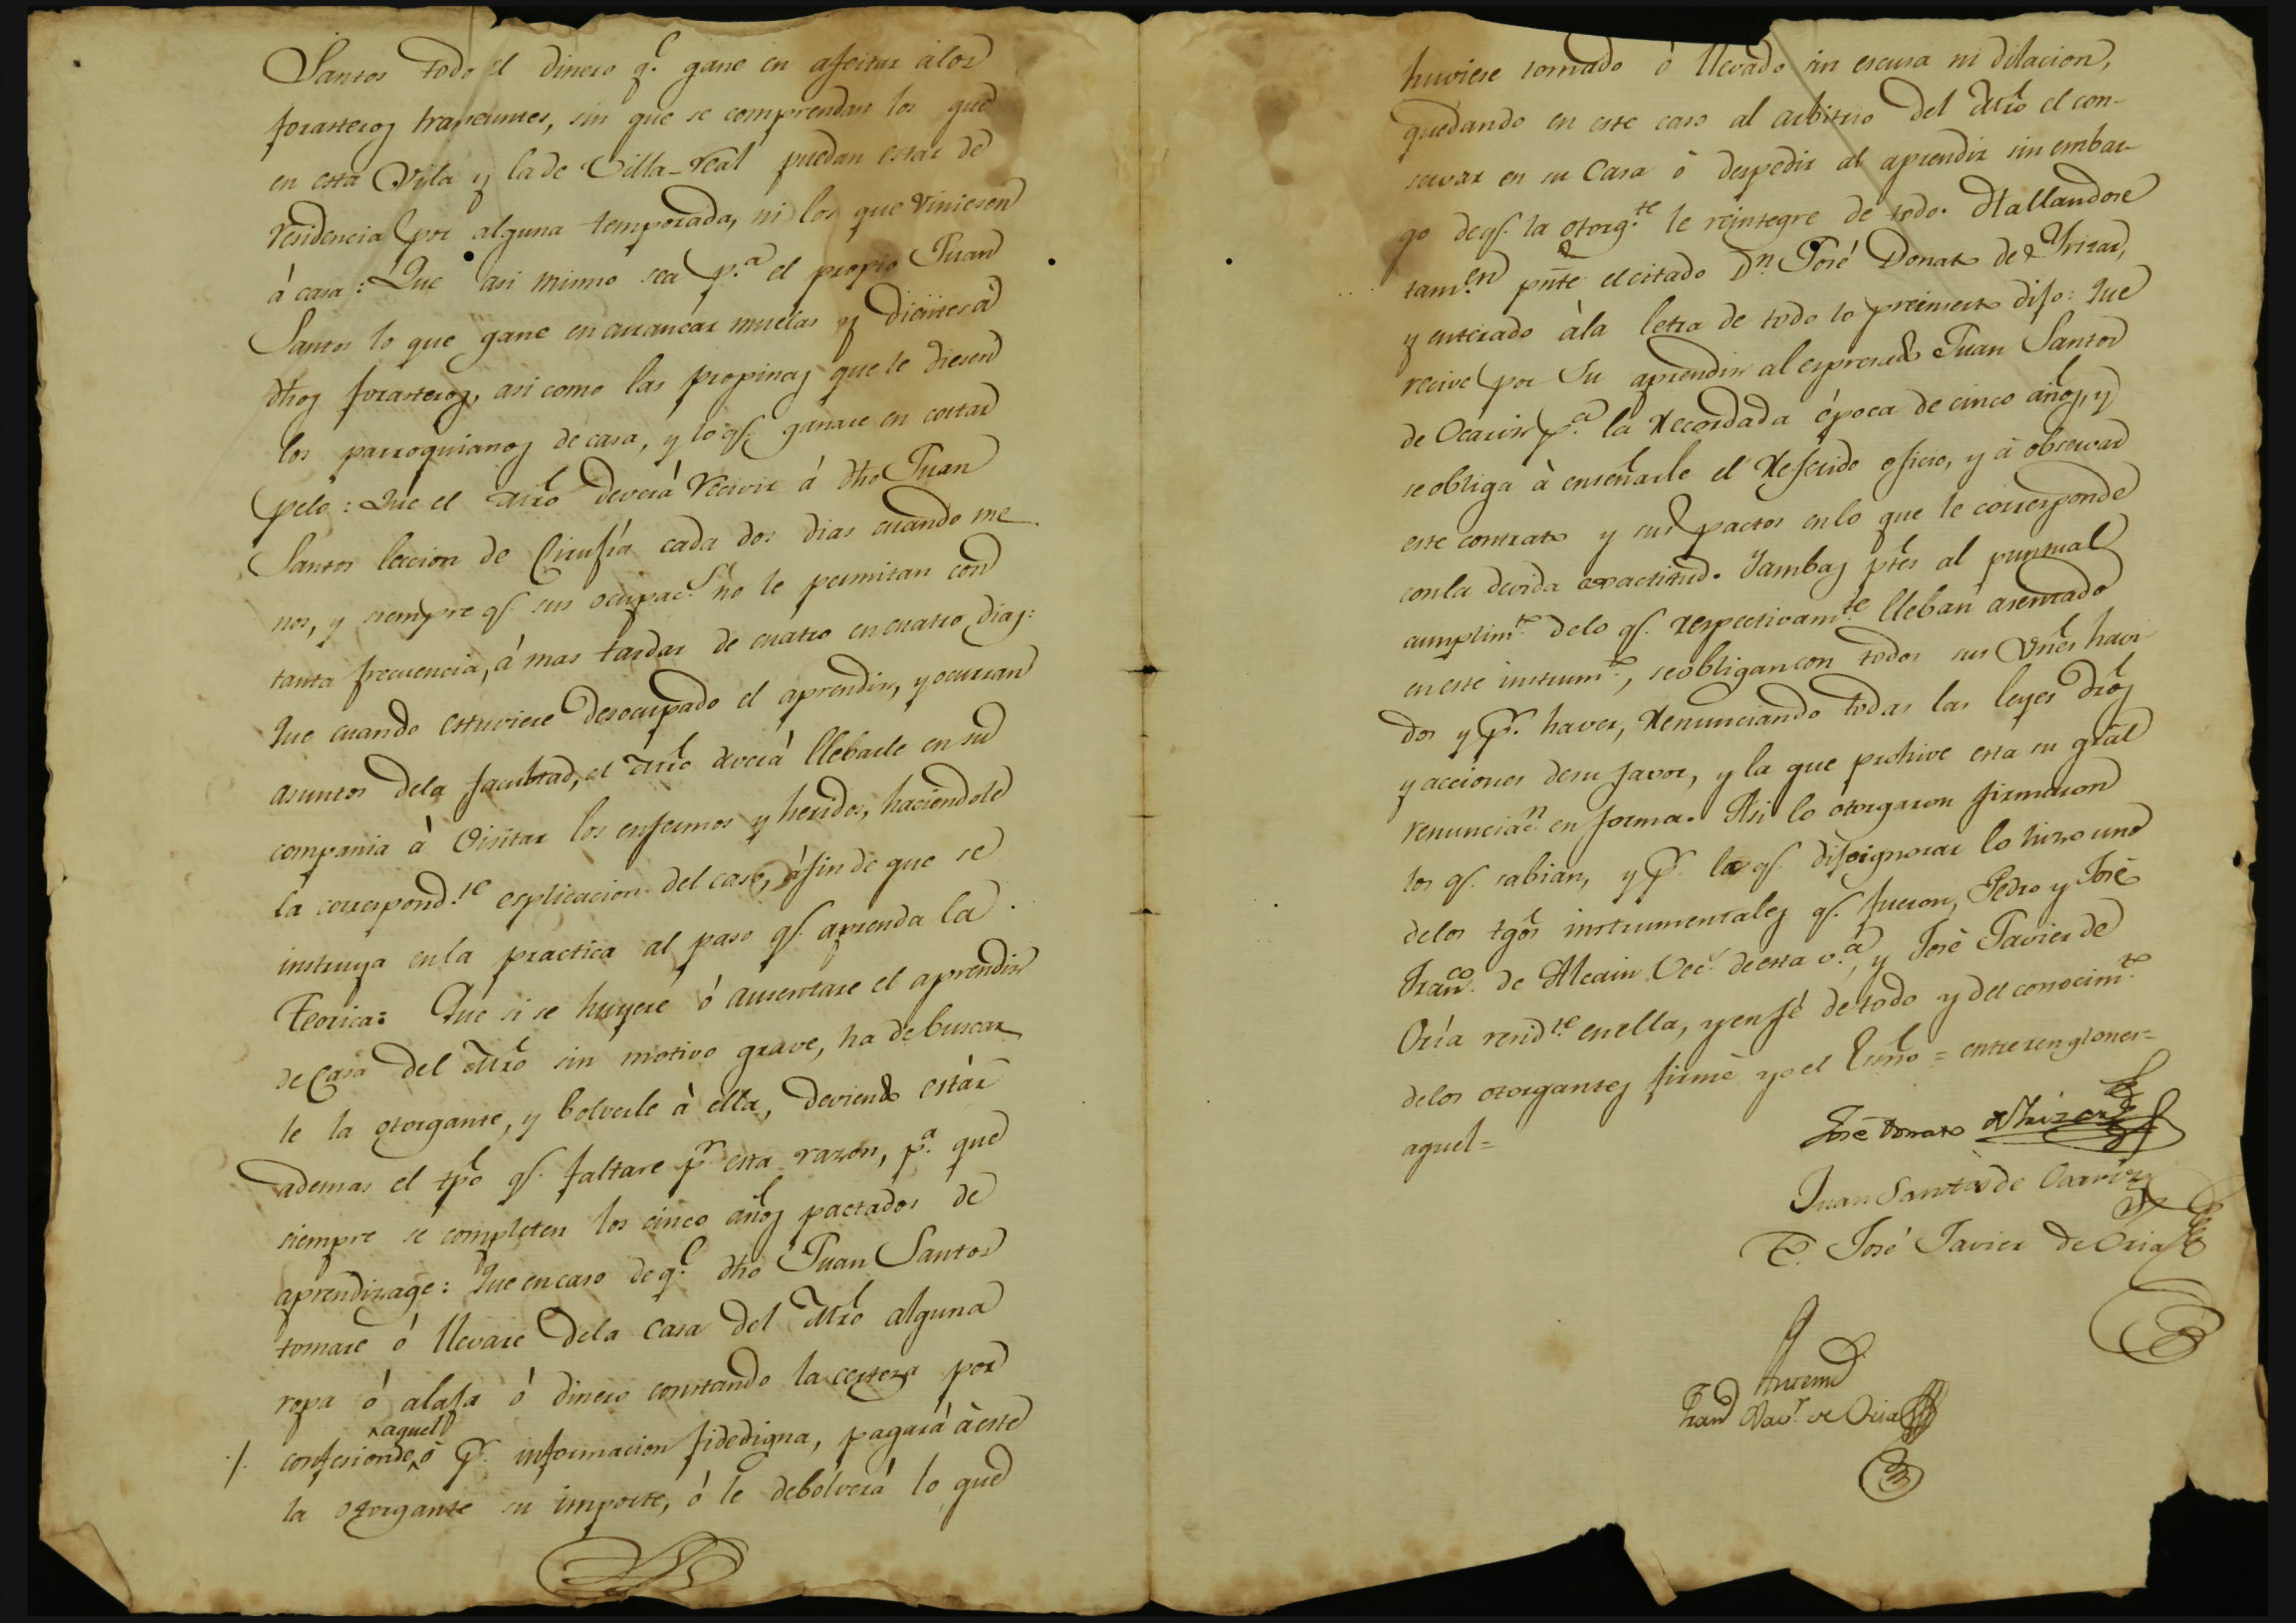 Santos todo el dinero q.e gane en afeitar àlos
forasteros transeuntes, sin que se comprendan los que
en esta Villa y la de Villa-real puedan estar de
residencia por alguna temporada, ni los que viniesen
á casa: Que asi mismo sea p.a el propio Juan
Santos lo que gane en arrancar muelas y dientes à
dhos forasteros, asi como las propinas que le diesen
los parroquianos de casa, y lo q.e ganare en cortar
pelo: Que el Mro deverá recivir á dho Juan
Santos leccion de Cirujía cada dos dias cuando me
nos, y siempre q.e sus ocupac.s no le permitan con
tanta frecuencia, á mas tardar de cuatro en cuatro dias:
Que cuando estuviere desocupado el aprendiz, y ocurran
asuntos dela facultad, el Mro deverá llebarle en su
compania à visitar los enfermos y heridos, haciendole
la correspond.te esplicacion del caso, áfin de que se
instruya en la practica al paso q.e aprenda la
Teorica: Que si se huyere ó ausentare el aprendiz
de Casa del Mro sin motivo grave, ha de buscar
le la otorgante, y bolverle à ella, deviendo estàr
ademas el tpo q.e faltare p.r esta razon, p.a que
siempre se completen los cinco años pactados de
aprendizage: Que en caso de q.e dho Juan Santos
tomare ó llevare dela casa del Mro alguna
ropa ó alaja ó dinero constando la certeza por
aquel
confesion de, ò p.r informacion fidedigna, pagará à este
la otorgante su importe, ó le debolverá lo que
huviere tomado ó llevado sin escusa ni dilacion,
quedando en este caso al arbitrio del Mro el con-
servar en su Casa ò despedir al aprendiz sin embar-
go de q.e la otorg.te le reintegre de todo. Hallandose
tam.en pnte el citado D.n José Donato de Yrizar,
y enterado àla letra de todo lo preinserto dijo: Que
recive por su aprendiz al espresado Juan Santos
de Ocariz p.a la recordada época de cinco años, y
se obliga à enseñarle el referido oficio, y à observar
este contrato y sus pactos en lo que le corresponde
con la devida exactitud. Yambas ptes al puntual
cumplim.to delo q.e respectivam.te lleban asentado
en este instrum.to, se obligan con todos sus Vnes havi
dos y p.r haver, renunciando todas las leyes dros
y acciones de su favor, y la que prohive esta su gral
renunciac.n en forma. Asi lo otorgaron firmaron
los q.e sabian, y p.r la q.e dijo ignorar lo hizo uno
delos tgos instrumentales q.e fueron, Pedro y José
Fran.co de Alcain Vec.s de esta v.a, y José Javier de
Oría resid.te en ella, y en fé de todo y del conocim.to
delos otorgantes firmé yo el Esno = entre renglones=
aquel=
José Donato de Yrizar
Juan Santos de Ocariz
T.o José Javier de Oria
Antemi
Fran.co Xav.r de Oria